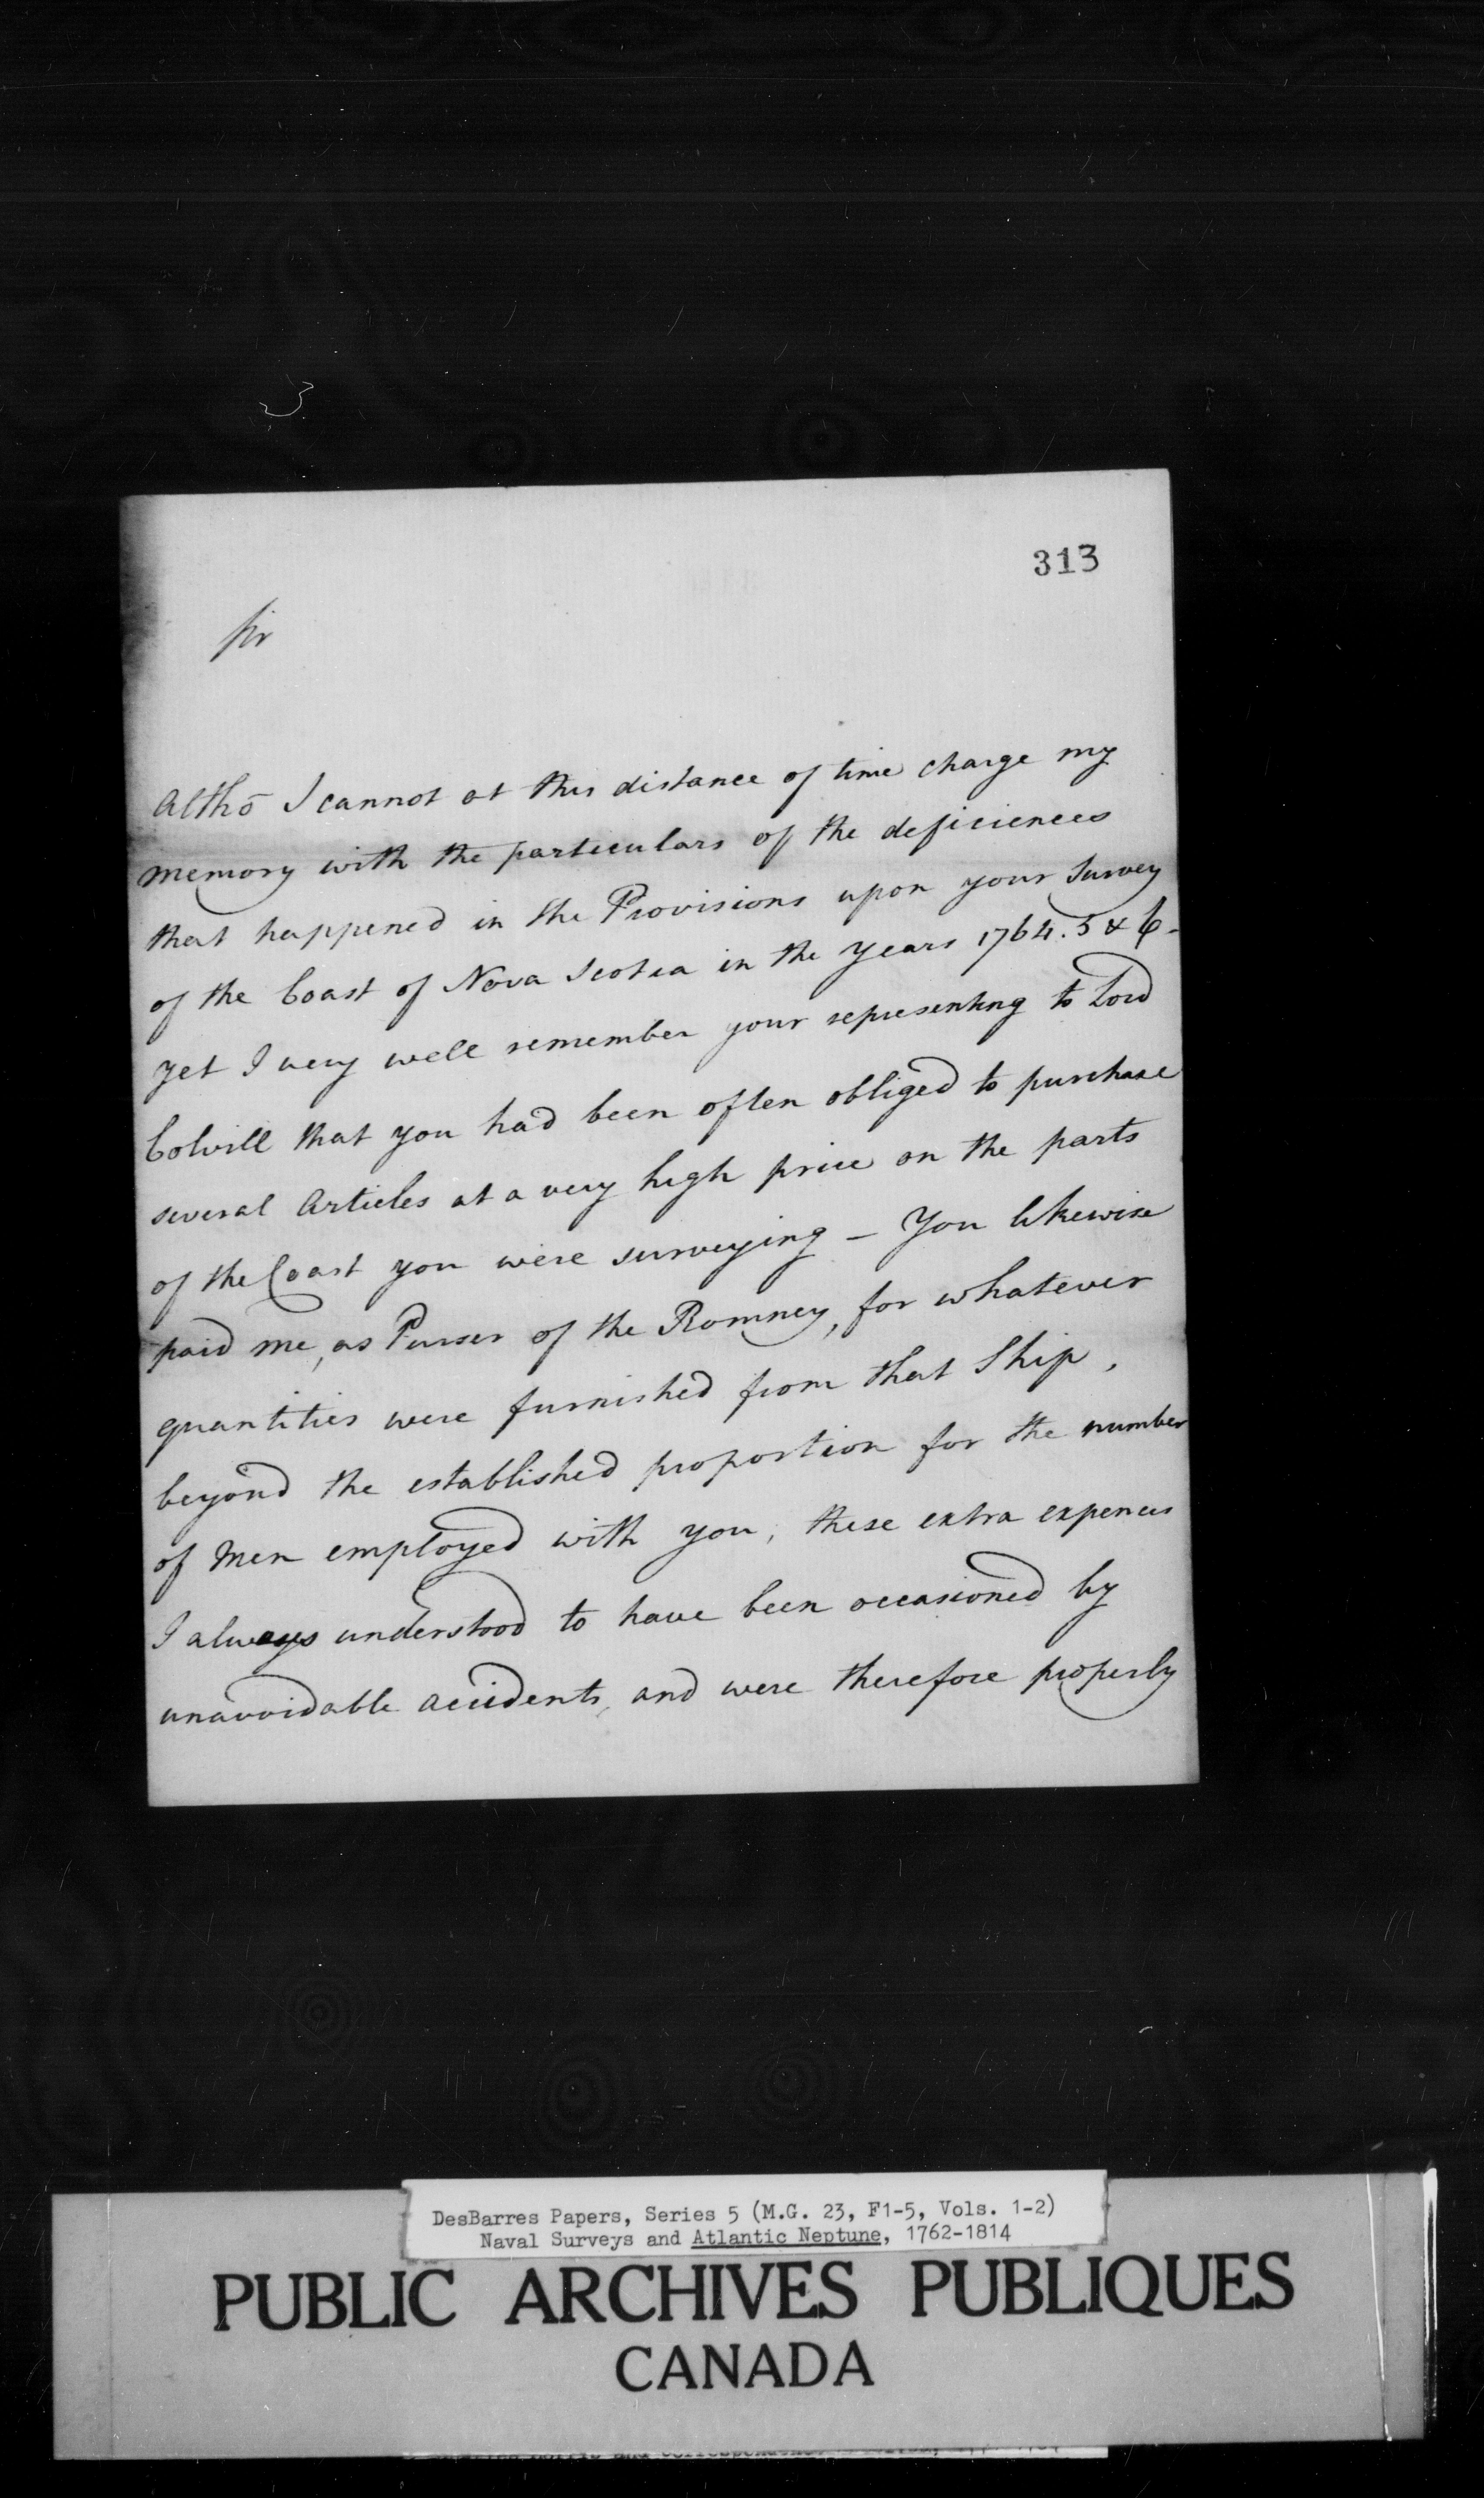 313
Sir
Altho I cannot at this distance of time charge my
memory with the particulars of the deficiencees
that happened in the Provisions upon your Survey
of the Coast of Nova Scotia in the Years 1764. 5 & 6 -
yet I very well remember your representing to Lord
Colvill that you had been often obliged to purchase
several Articles at a very high price on the parts
of the Coast you were surveying – You likewise
paid me, as Purser of the Romney, for whatever
quantities were furnished from that Ship,
beyond the established proportion for the number
of Men employed with you, these extra expences
I always understood to have been occasioned by
unavoidable accidents, and were therefore properly
DesBarres Papers, Series 5 (M.G. 23, F1-5, Vols. 1-2)
Naval Surveys and Atlantic Neptune, 1762-1814
PUBLIC ARCHIVES PUBLIQUES
CANADA